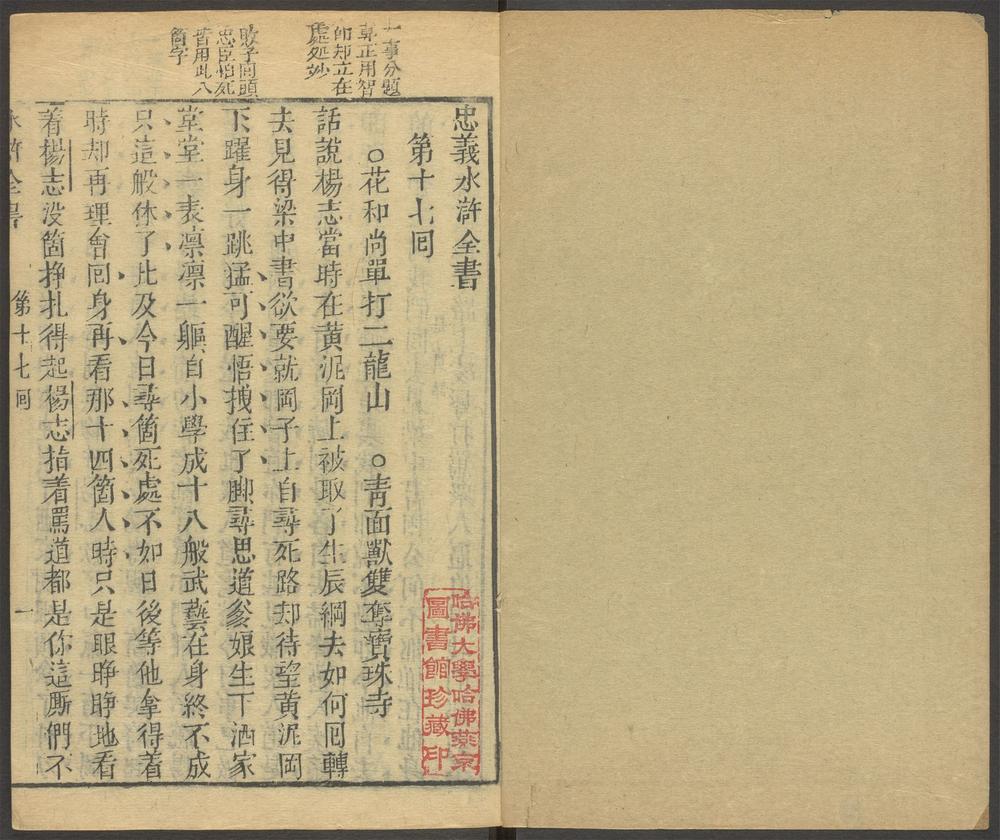 一事分題
郭正用智
師却立在
處処妙
敗子回頭
忠臣怕死
皆用此八
箇字
忠義水滸全書
第十七回
○花和尚單打二龍山　○青面獸雙奪寶珠寺
話說楊志當時在黃泥岡上被取了生辰綱去如何回轉
去見得梁中書欲要就岡子上自尋死路却待望黃泥岡
下躍身一跳猛可醒悟拽住了脚尋思道爹娘生下洒家
堂堂一表凛凛一軀自小學成十八般武藝在身終不成
只這般休了比及今日尋箇死處不如日後等他拿得着
時却再理會回身再看那十四箇人時只是眼睁睁地看
着楊志没箇挣扎得起楊志指着罵道都是你這厮們不
水滸全書　第十七回　一
哈佛大學哈佛燕京
圖書館珍藏印